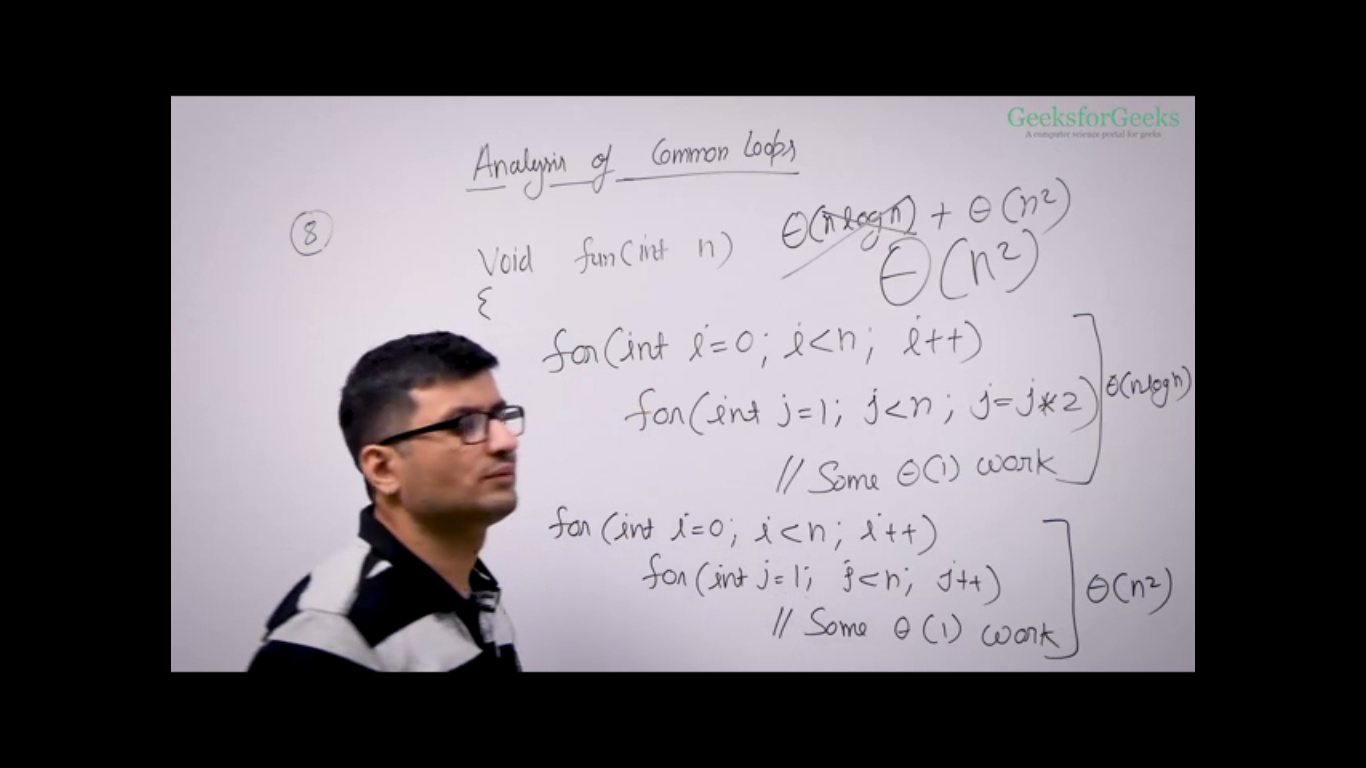 GeeksforGeeks
A computer science portal for geeks
Analysis of Common Loops
8
Void fun(int n)
θ(nlogn) + θ(n²)
θ(n²)
{
for(int i=0; i<n; i++)
for(int j=1; j<n; j=j*2)
θ(nlogn)
// Some θ(1) work
for(int i=0; i<n; i++)
for(int j=1; j<n; j++)
θ(n²)
// Some θ(1) work